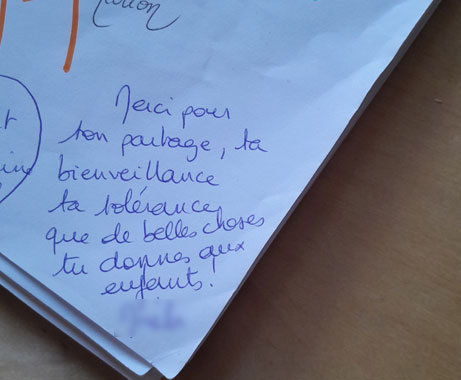 Merci pour
ton partage, ta
bienveillance
ta tolérance,
que de belles choses
tu donnes aux
enfants.